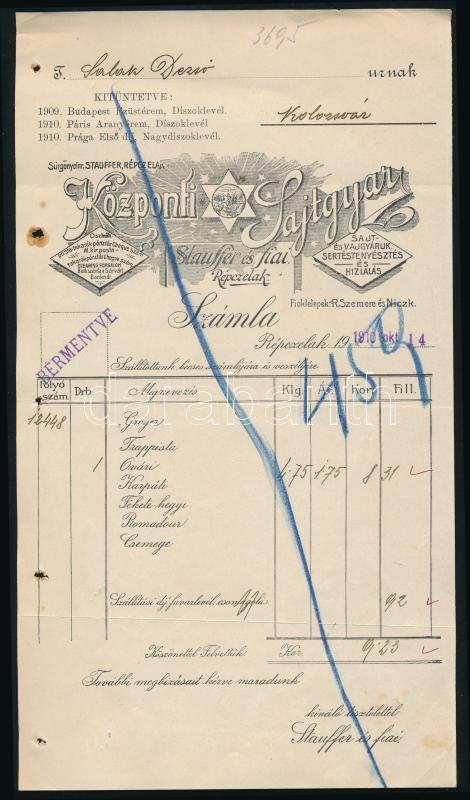 3695
T. Salak Dezső urnak
KITÜNTETVE:
1909. Budapest Ezüstérem, Díszoklevél.
1910. Páris Aranyérem, Díszoklevél
1910. Prága Első díj, Nagydíszoklevél.
Kolozsvár
Sürgönyeim: STAUFFER, RÉPCZELAK
Központi Sajtgyár
Stauffer és fiai
Répczelak
SAJT-
ÉS VAJGYÁRUK,
SERTÉSTENYÉSZTÉS
ÉS
HIZLALÁS
Fióktelepek: R. Szemere és Niczk.
Számla
Répczelak, 1910 okt 14
BÉRMENTVE
459
Szállítottunk becses számlájára és veszélyére
Folyó szám. Drb. Megnevezés Klg. Ár Kor. Fill.
12448 Groyer
Trappista
1 Óvári 4.75 1.75 8 31
Kárpáti
Fekete-hegyi
Romadour
Csemege
Szállítási díj fuvarlevél, 92
Köszönettel Felvettük: Kor. 9.23
További megbízásait kérve maradunk
kiváló tisztelettel
Stauffer és fiai.
Darabanth